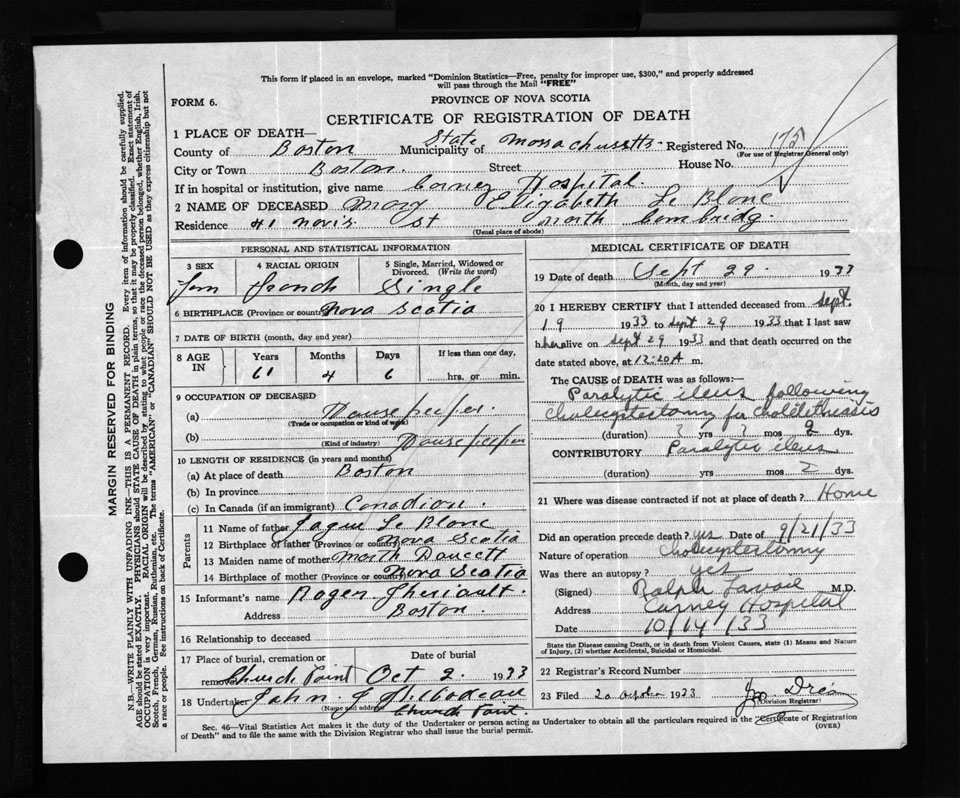 This form if placed in an envelope, marked "Dominion Statistics—Free, penalty for improper use, $300," and properly addressed
will pass through the Mail "FREE"
FORM 6.
PROVINCE OF NOVA SCOTIA
CERTIFICATE OF REGISTRATION OF DEATH
1 PLACE OF DEATH—
County of Boston Municipality of State Massachusetts Registered No. 175
(For use of Registrar General only)
City or Town Boston. Street House No.
If in hospital or institution, give name Carney Hospital
2 NAME OF DECEASED Mary Elizabeth Le Blanc
Residence 41 St North Cambridg.
(Usual place of abode)
PERSONAL AND STATISTICAL INFORMATION
3 SEX 4 RACIAL ORIGIN 5 Single, Married, Widowed or Divorced. (Write the word)
Fem French Single
6 BIRTHPLACE (Province or country) Nova Scotia
7 DATE OF BIRTH (month, day and year)
8 AGE IN Years Months Days If less than one day,
61 4 6 hrs. or min.
9 OCCUPATION OF DECEASED
(a) Housekeeper.
(Trade or occupation or kind of work)
(b) Housekeeper
(Kind of industry)
10 LENGTH OF RESIDENCE (in years and months)
(a) At place of death Boston
(b) In province
(c) In Canada (if an immigrant) Canadian.
Parents
11 Name of father Le Blanc
12 Birthplace of father (Province or country) Nova Scotia
13 Maiden name of mother Doucett
14 Birthplace of mother (Province or country) Nova Scotia
15 Informant's name Roger Theriault.
Address Boston.
16 Relationship to deceased
17 Place of burial, cremation or removal Date of burial
Church Point Oct 2. 1933
18 Undertaker John
(Name and address) Church Point.
MEDICAL CERTIFICATE OF DEATH
19 Date of death Sept 29. 1933
(Month, day and year)
20 I HEREBY CERTIFY that I attended deceased from Sept.
19 1933 to Sept 29 1933 that I last saw
h her alive on Sept 29 1933 and that death occurred on the
date stated above, at 12:20 A m.
The CAUSE of DEATH was as follows:—
Paralytic ileus following
cholecystostomy for cholelithiasis
(duration) ? yrs ? mos 2 dys.
CONTRIBUTORY Paralytic ileus
(duration) yrs mos 2 dys.
21 Where was disease contracted if not at place of death? Home
Did an operation precede death? yes Date of 9/21/33
Nature of operation Cholecystostomy
Was there an autopsy? yes
(Signed) Ralph M.D.
Address Carney Hospital
Date 10/14/33
State the Disease causing Death, or in death from Violent Causes, state (1) Means and Nature
of Injury, (2) whether Accidental, Suicidal or Homicidal.
22 Registrar's Record Number
23 Filed 20 1933
(Division Registrar)
Sec. 46—Vital Statistics Act makes it the duty of the Undertaker or person acting as Undertaker to obtain all the particulars required in the Certificate of Registration
of Death" and to file the same with the Division Registrar who shall issue the burial permit.
(OVER)
MARGIN RESERVED FOR BINDING
N.B.—WRITE PLAINLY WITH UNFADING INK—THIS IS A PERMANENT RECORD. Every item of information should be carefully supplied.
AGE should be stated EXACTLY. PHYSICIANS should STATE CAUSE OF DEATH in plain terms, so that it may be properly classified. Exact statement of
OCCUPATION is very important. RACIAL ORIGIN will be described by stating to what people or race the deceased person belonged, whether English, Irish,
Scotch, French, German, Russian, Ruthenian, etc. The terms "AMERICAN" or "CANADIAN" SHOULD NOT BE USED as they express citizenship but not
a race or people. See instructions on back of Certificate.